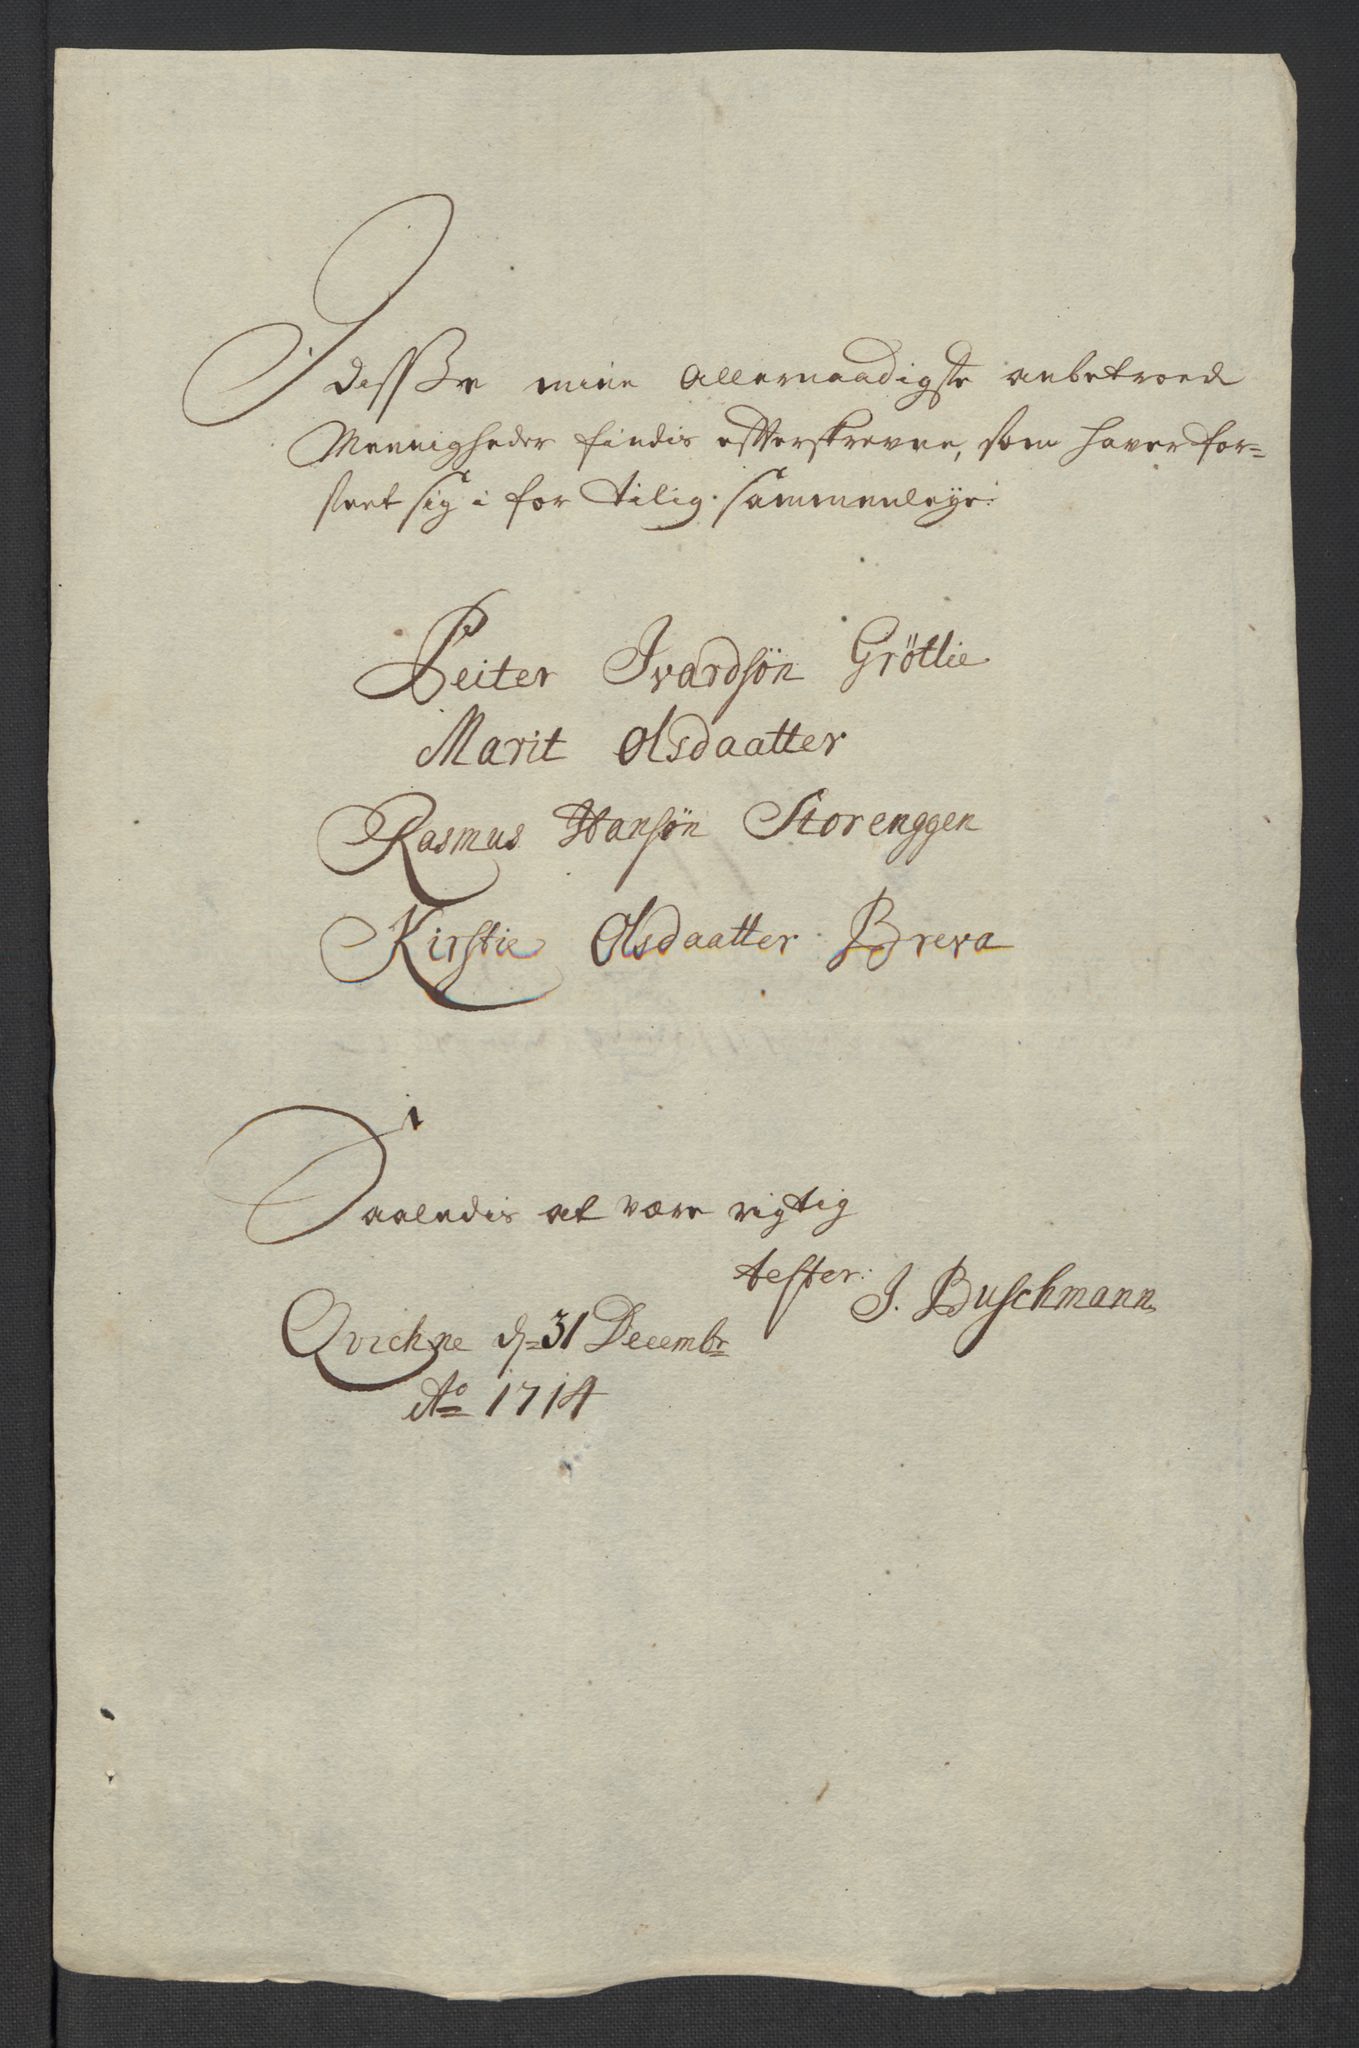 I disse mine Allernaadigste anbetroed
Menigheder findis efterskrevne, som haver for-
seet sig i for tilig sammenleye:
Peiter Ivardsøn Grøtlie
Marit Olsdaatter
Rasmus Hansøn Storenggen
Kirstie Olsdaatter Breva
Saaledis at være rigtig
tester: J. Buschmann
Qvickne d. 31 Decembr
Ao 1714